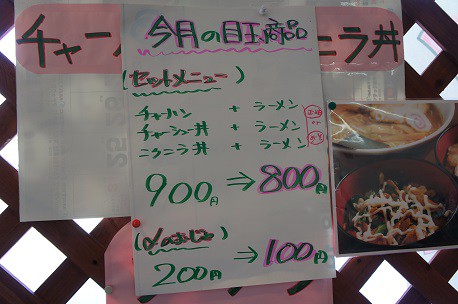 チャー
ニラ丼
今月の目玉商品
(セットメニュー)
チャーハン + ラーメン
チャーシュー丼 + ラーメン
ニクニラ丼 + ラーメン
or
900円 ⇒ 800円
200円 ⇒ 100円